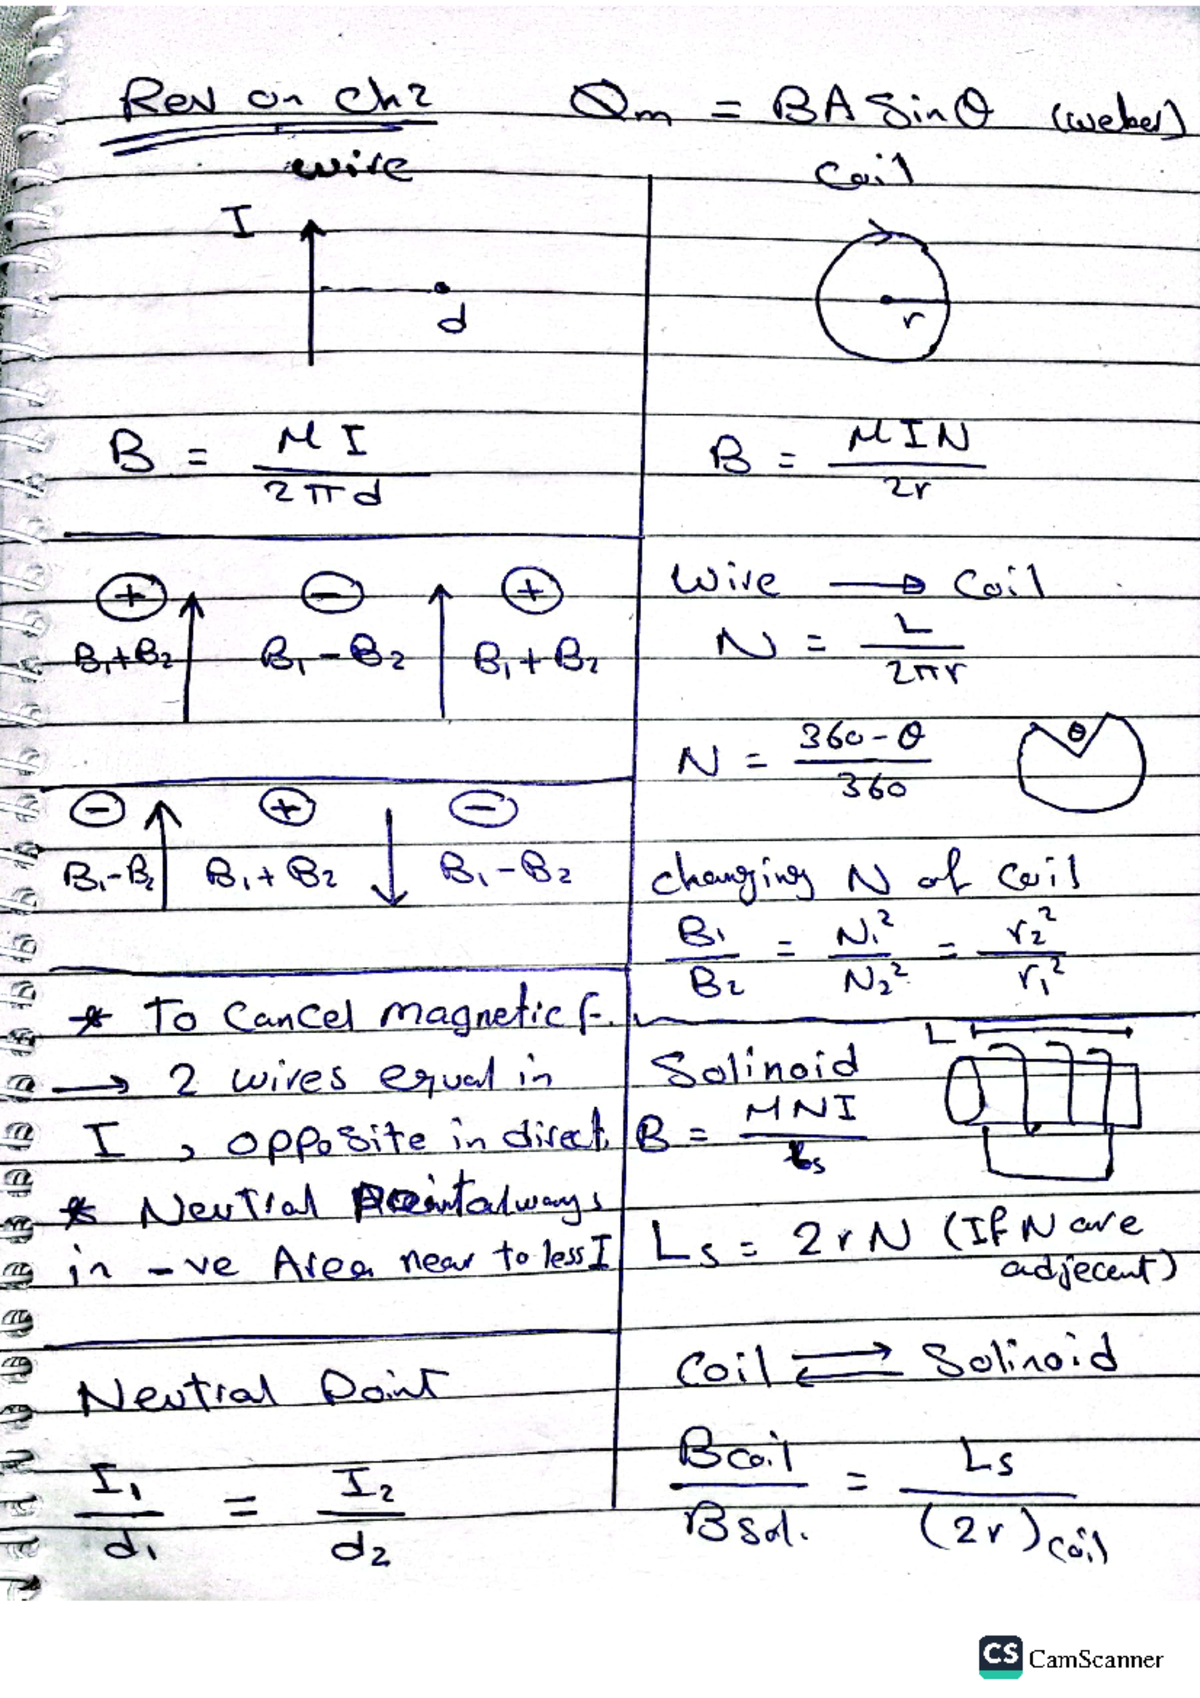 Rev on Ch2 Φm = BA Sinθ (weber)
wire
I
d
B = μI / 2πd
⊕ ⊖ ⊕
B1+B2 B1-B2 B1+B2
⊖ ⊕ ⊖
B1-B2 B1+B2 B1-B2
* To Cancel magnetic f.
→ 2 wires equal in
I , opposite in direct.
* Neutral Point always
in -ve Area near to less I
Neutral Point
I1/d1 = I2/d2
Coil
r
B = μIN / 2r
Wire → Coil
N = L / 2πr
N = 360-θ / 360
θ
changing N of Coil
B1/B2 = N1²/N2² = r2²/r1²
L
Solinoid
B = μNI / Ls
Ls = 2rN (If N are
adjecent)
Coil ⇄ Solinoid
Bcoil / Bsol. = Ls / (2r)coil
CS CamScanner